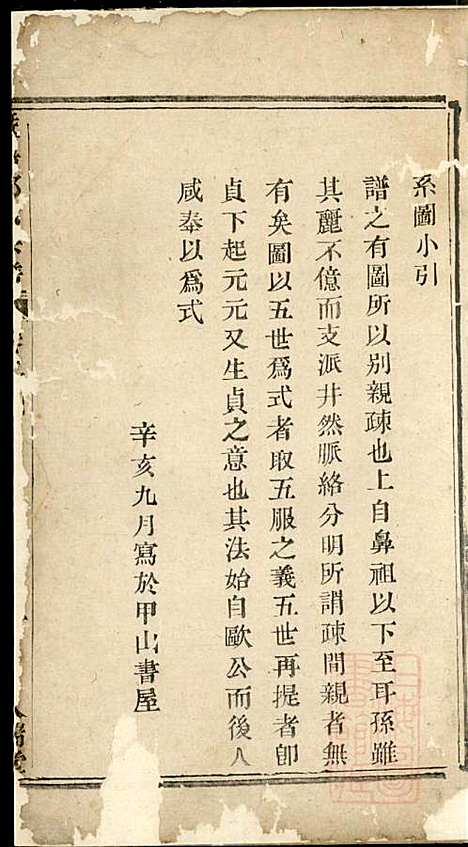 系圖小引
譜之有圖所以別親疎也上自鼻祖以下至耳孫雖
其麗不億而支派井然脈絡分明所謂疎間親者無
有矣圖以五世爲式者取五服之義五世再提者卽
貞下起元元又生貞之意也其法始自歐公而後人
咸奉以爲式
辛亥九月寫於甲山書屋